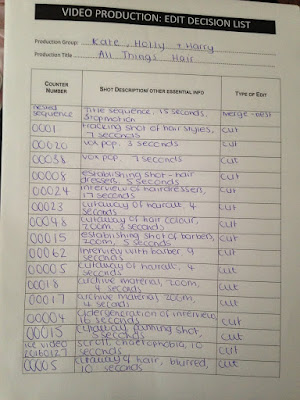 VIDEO PRODUCTION: EDIT DECISION LIST
Production Group: Kate, Holly + Harry
Production Title: All Things Hair
COUNTER NUMBER SHOT DESCRIPTION/ OTHER ESSENTIAL INFO TYPE OF EDIT
nested sequence Title sequence, 15 seconds, stopmotion merge
0001 tracking shot of hair styles, 7 seconds cut
00020 vox pop. 3 seconds cut
00038 vox pop. 7 seconds cut
00008 establishing shot - hair dressers, 5 seconds cut
00024 interview of hairdressers, 17 seconds cut
00023 cutaway of haircut, 4 seconds cut
00048 cutaway of hair colour, zoom, 3 seconds cut
00015 establishing shot of barbers, zoom, 5 seconds cut
00062 interview with barber 9 seconds cut
00005 cutaway of haircut, 4 seconds cut
00018 archive material, zoom, 4 seconds cut
00017 archive material zoom, 4 seconds cut
00004 older generation interview 16 seconds cut
00015 cutaway panning shot, 5 seconds cut
video 20160127 scroll, chaetophobia, 10 seconds cut
00005 cutaway of hair, blurred, 10 seconds cut